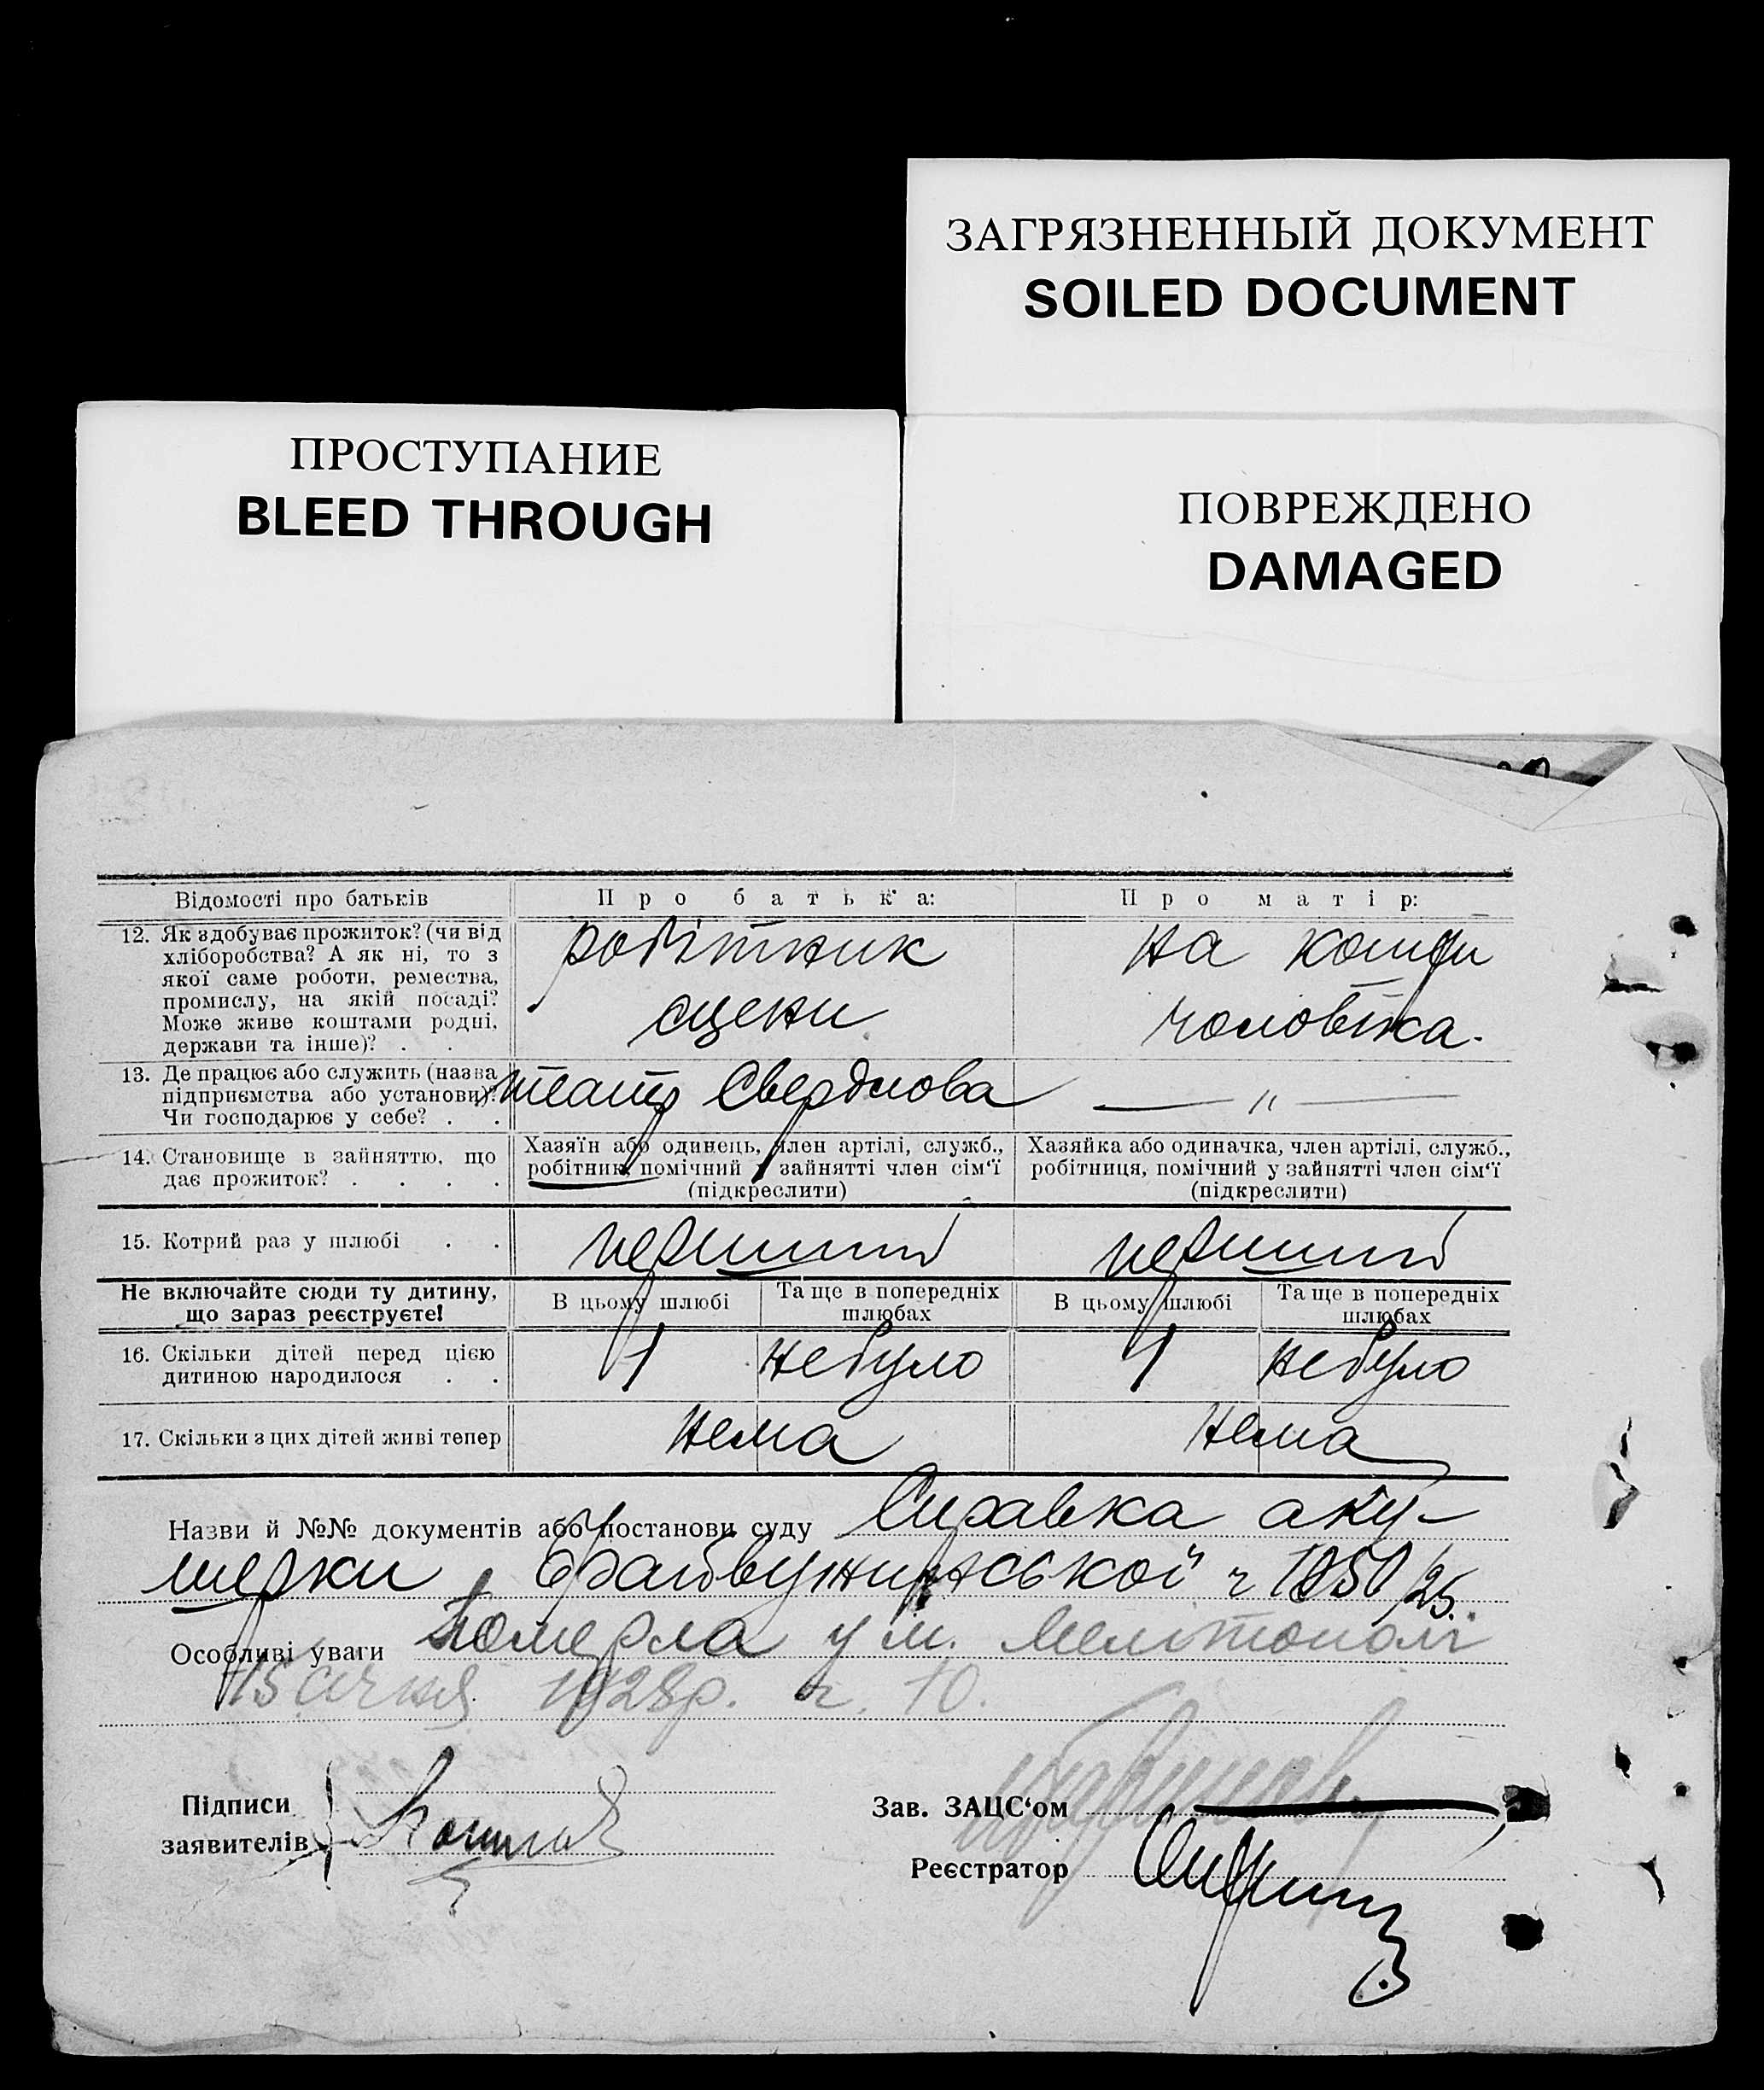 ЗАГРЯЗНЕННЫЙ ДОКУМЕНТ
SOILED DOCUMENT
ПРОСТУПАНИЕ
BLEED THROUGH
ПОВРЕЖДЕНО
DAMAGED
Відомості про батьків
Про батька:
Про матір:
12. Як здобуває прожиток? (чи від
хліборобства? А як ні, то з
якої саме роботи, ремества,
промислу, на якій посаді?
Може живе коштами родні,
держави та інше)? . .
робітник
сцени
на кошти
чоловіка.
13. Де працює або служить (назва
підприємства або установи)?
Чи господарює у себе? . .
театр Свердлова
— „ —
14. Становище в зайняттю, що
дає прожиток? . . . .
Хазяїн або одинець, член артілі, служб.,
робітник, помічний у зайнятті член сім‘ї
(підкреслити)
Хазяйка або одиначка, член артілі, служб.,
робітниця, помічний у зайнятті член сім‘ї
(підкреслити)
15. Котрий раз у шлюбі . .
перший
перший
Не включайте сюди ту дитину,
що зараз реєструєте!
В цьому шлюбі
Та ще в попередніх
шлюбах
В цьому шлюбі
Та ще в попередніх
шлюбах
16. Скільки дітей перед цією
дитиною народилося . .
1
небуло
1
небуло
17. Скільки з цих дітей живі тепер
нема
нема
Назви й №№ документів або постанови суду Справка аку-
шерки
Особливі уваги Померла у м. Мелітополі
15 січня 1928р. ч. 10.
Підписи
заявителів
Зав. ЗАЦС‘ом
Реєстратор